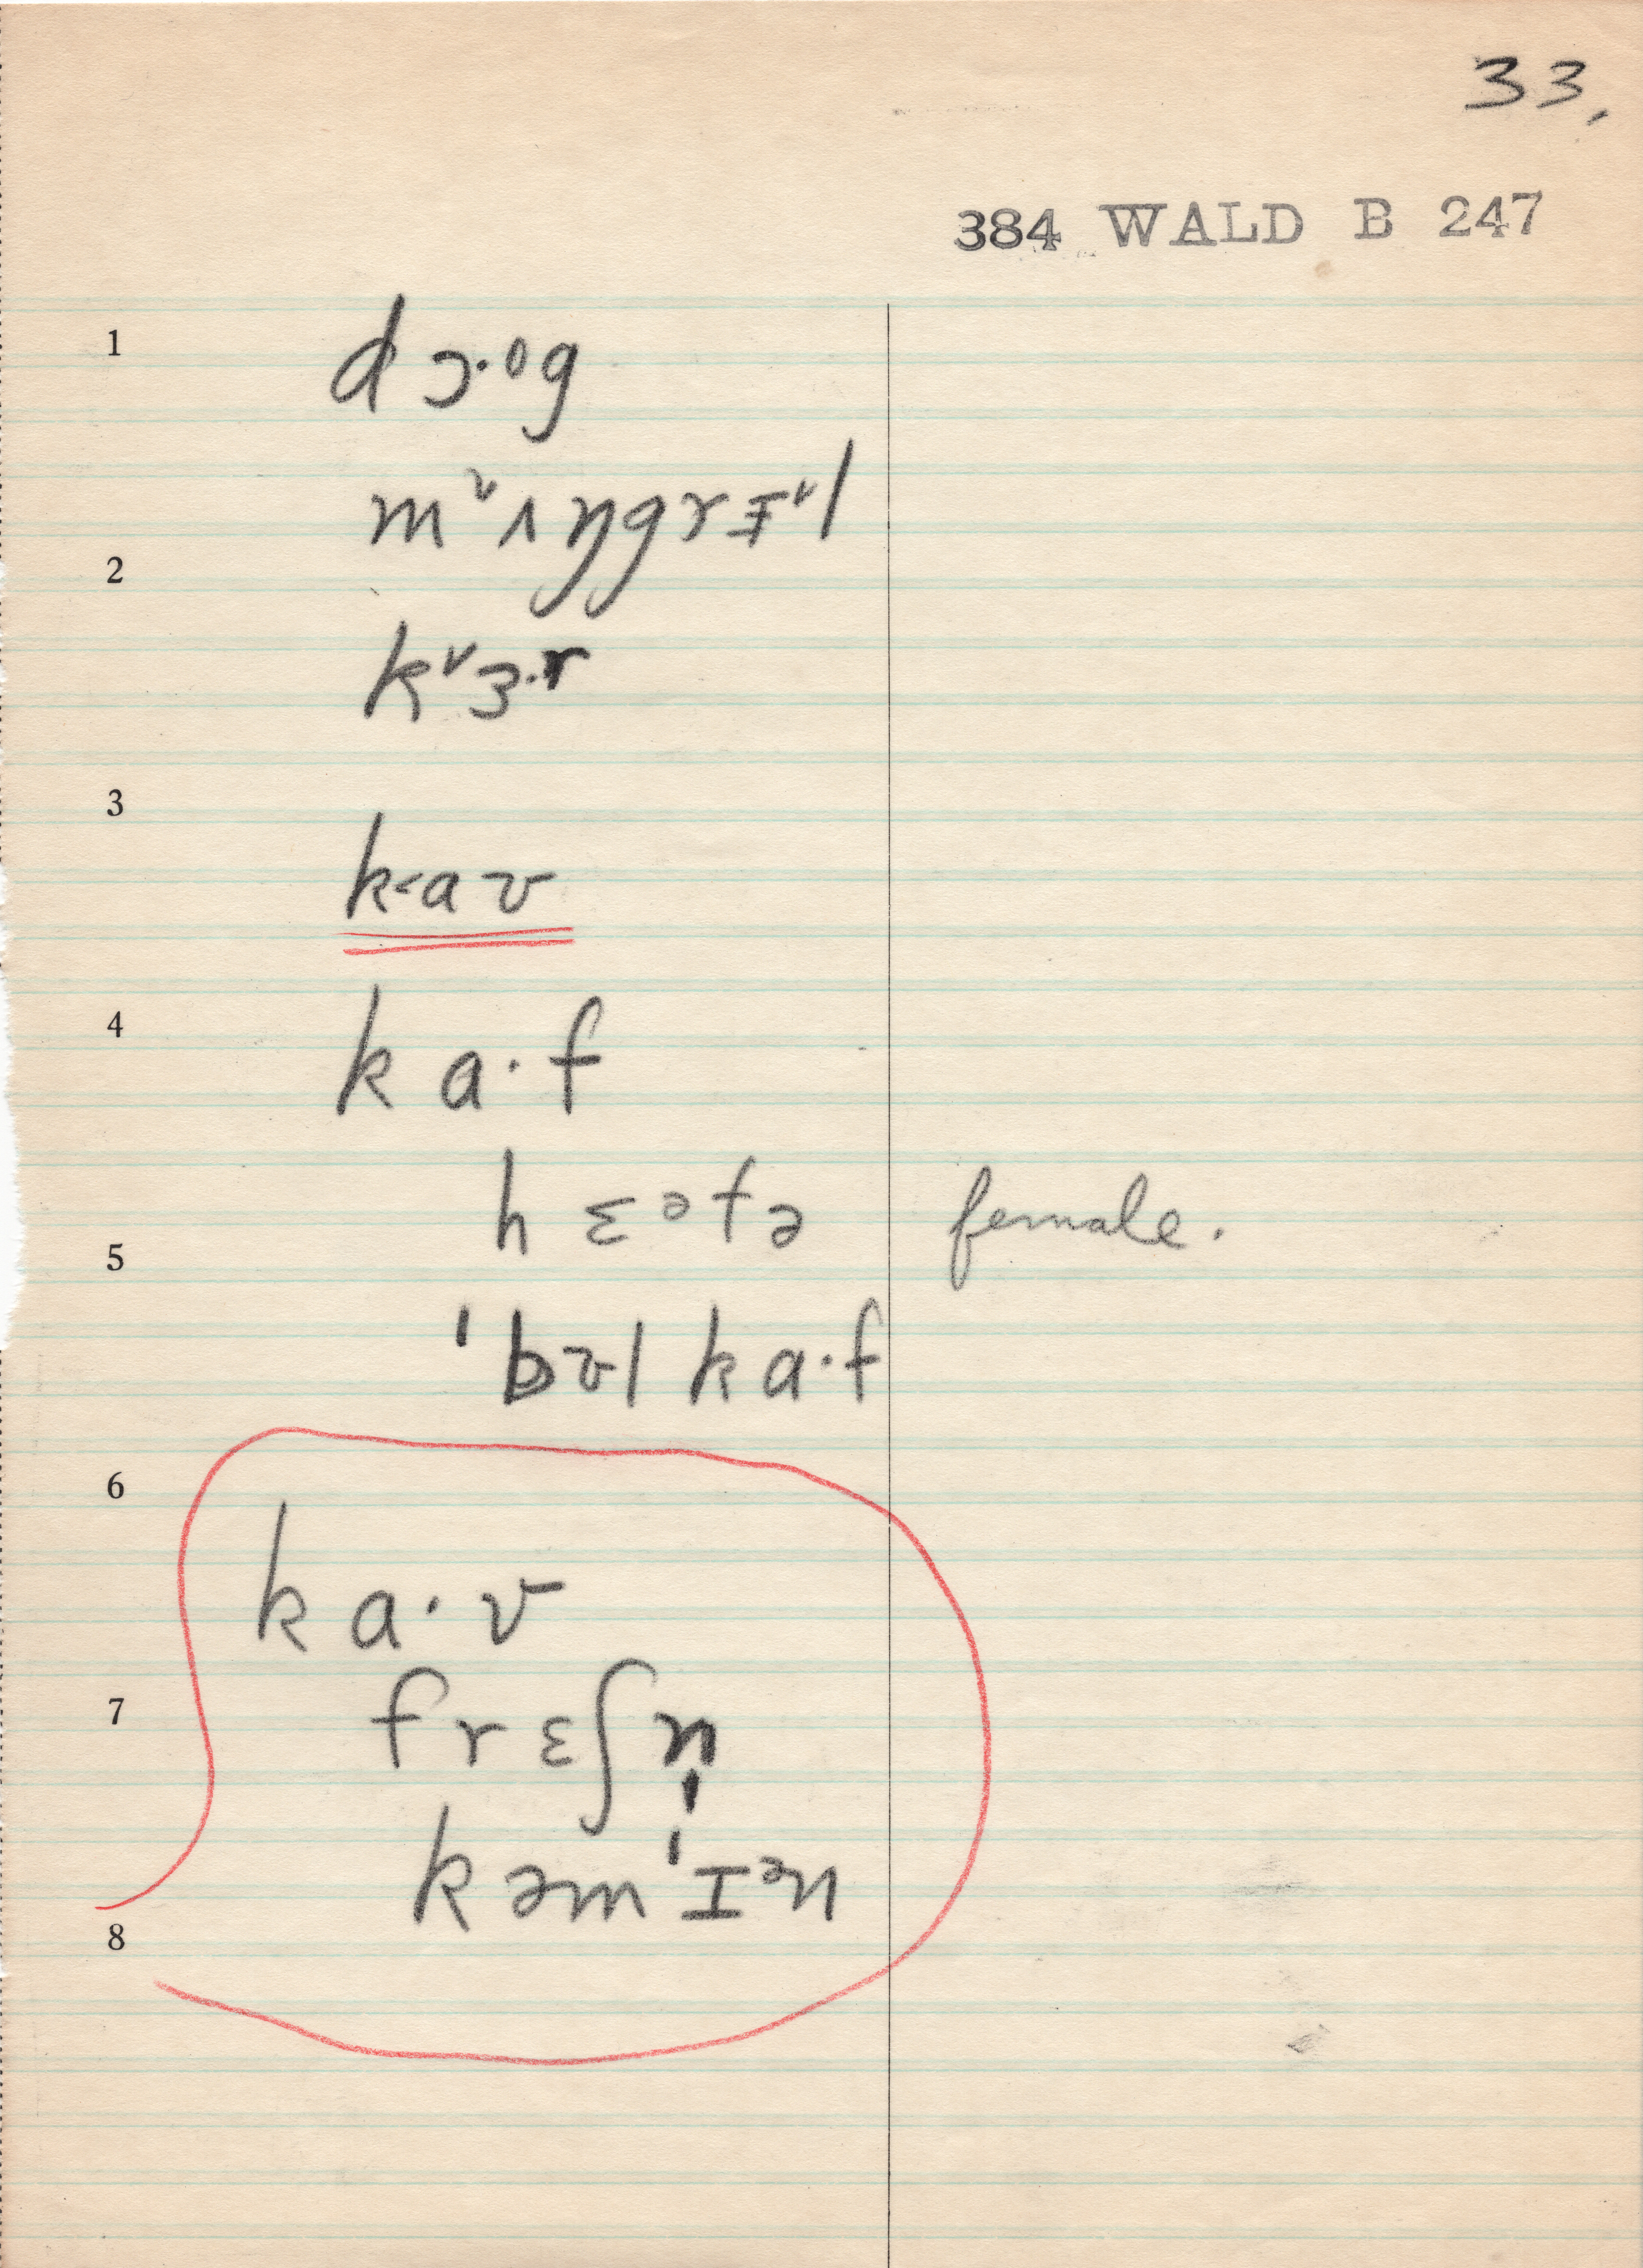 33,
384 WALD B 247
1
dɔ·ᵒg
mᵛʌŋgrɪ̵ᵛl
2
kᵛɜ·r
3
k˂av
4
ka·f
hɛᵊfə female.
5
ˈbʊl ka·f
6
ka·v
7
frɛʃn̩
kəmˈɪᵊn
8